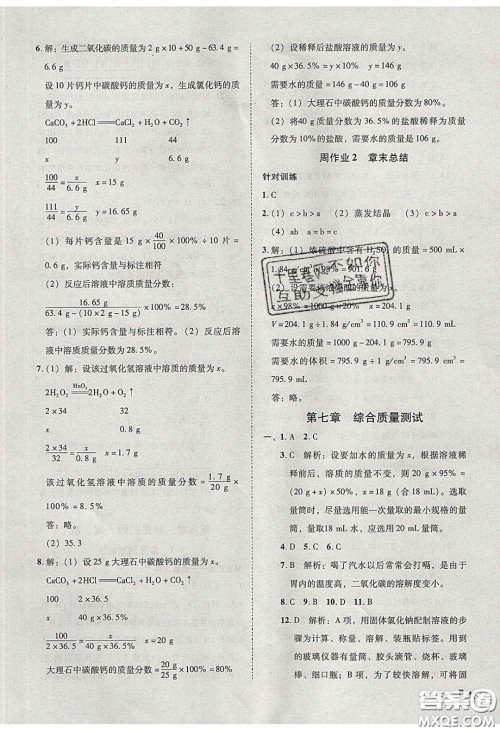 6. 解：生成二氧化碳的质量为 2 g×10+50 g-63.4 g=
6.6 g
设 10 片钙片中碳酸钙的质量为 x，生成氯化钙的
质量为 y。
CaCO₃+2HCl══CaCl₂+H₂O+CO₂↑
100 111 44
x y 6.6 g
100/44=x/6.6 g x=15 g
111/44=y/6.6 g y=16.65 g
(1) 每片钙片含量=15 g×40/100×100%÷10 片=
0.6 g；实际钙含量与标注相符
(2) 反应后溶液中溶质的质量分数=
16.65 g/63.4 g-(10×2 g-15 g)×100%=28.5%
答：(1) 实际钙含量与标注相符。(2) 反应后溶
液中溶质质量分数为 28.5%。
7. (1) 解：设该过氧化氢溶液中溶质的质量为 x。
2H₂O₂ MnO₂══2H₂O+O₂↑
2×34 32
x 0.8 g
2×34/32=x/0.8 g x=1.7 g
该过氧化氢溶液中溶质的质量分数=1.7 g/20 g×
100%=8.5%
答：略。
(2) 35.3
8. 解：(1) 设 25 g 大理石中碳酸钙的质量为 x。
CaCO₃+2HCl══CaCl₂+H₂O+CO₂↑
100 2×36.5
x 40 g×36.5%
100/2×36.5=x/40 g×36.5% x=20 g
大理石中碳酸钙的质量分数=20 g/25 g×100%=80%
(2) 设稀释后盐酸溶液的质量为 y。
40 g×36.5%=y×10% y=146 g
需要水的质量=146 g-40 g=106 g
答：(1) 大理石中碳酸钙的质量分数为 80%。
(2) 将 40 g 质量分数为 36.5% 的盐酸稀释为质量
分数为 10% 的盐酸，需要水的质量为 106 g。
周作业 2 章末总结
针对训练
1. C
2. (1) c>b>a (2) 蒸发结晶 (3) c>b>a
(4) ab a=b=c
3. 解：(1) 浓硫酸中含有 H₂SO₄ 的质量=500 mL×
1.84 g/
(2)
x×98% x=204.1 g
V=204.1 g÷1.84 g/cm³=110.9 mL
需要水的质量=1 000 g-204.1 g=795.9 g
需要水的体积=795.9 g÷1 g/cm³=795.9 cm³=
795.9 mL
答：略。
千里春风不如你
互助文档全靠你
第七章 综合质量测试
一、1. A 2. C
3. C 解析：设要加水的质量为 x，根据溶液稀
释前后，溶质的质量不变，则 20 g×95%=
(20 g+x)×50%，x=18 g（合 18 mL），选用
量筒时，尽可能使用能一次量取的最小规格的量
筒，因量 18 mL 水，应选用 20 mL 的量筒。
4. D 5. A 6. D
7. B 解析：喝了汽水以后常常会打嗝，是由于
胃内的温度高，二氧化碳的溶解度变小。
8. C 9. C 10. D 11. B
12. A 解析：A 项，用固体氯化钠配制溶液的步
骤为计算、称量、溶解、装瓶贴标签。用到的
的玻璃仪器有量筒、胶头滴管、烧杯、玻璃
棒、细口瓶；B 项，为了较快溶解，可将固
答案圈
MXQE.COM